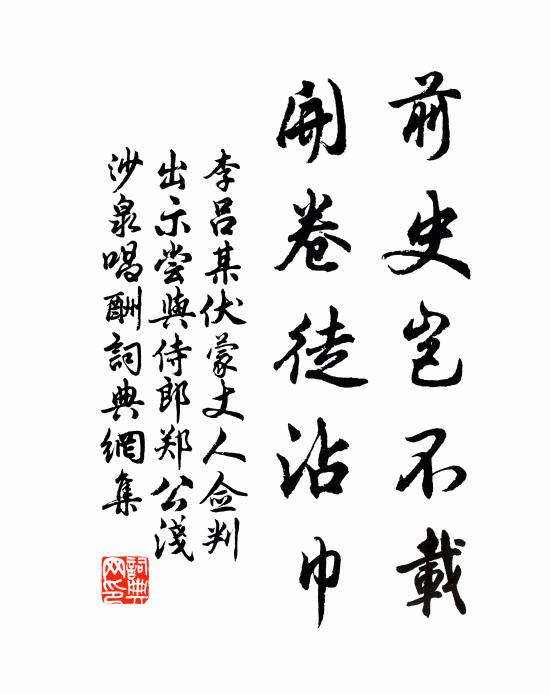 前史岂不載
開卷徒沾巾
李吕某伏蒙丈人佥判
出示尝與侍郎郑公淺
沙泉唱酬詞典網集
詞典网印